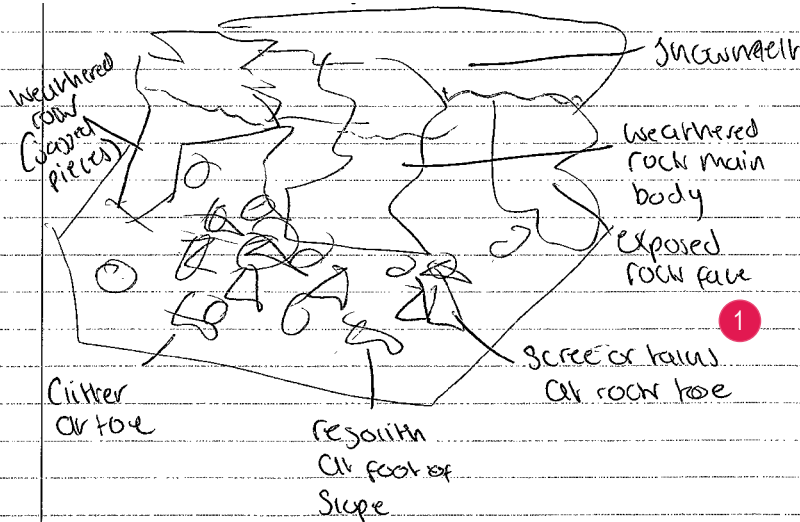 Snowmelt
weathered
rock
(jagged
pieces)
weathered
rock main
body
exposed
rock face
1
Scree or talus
at rock toe
Clitter
at toe
regolith
at foot of
Slope